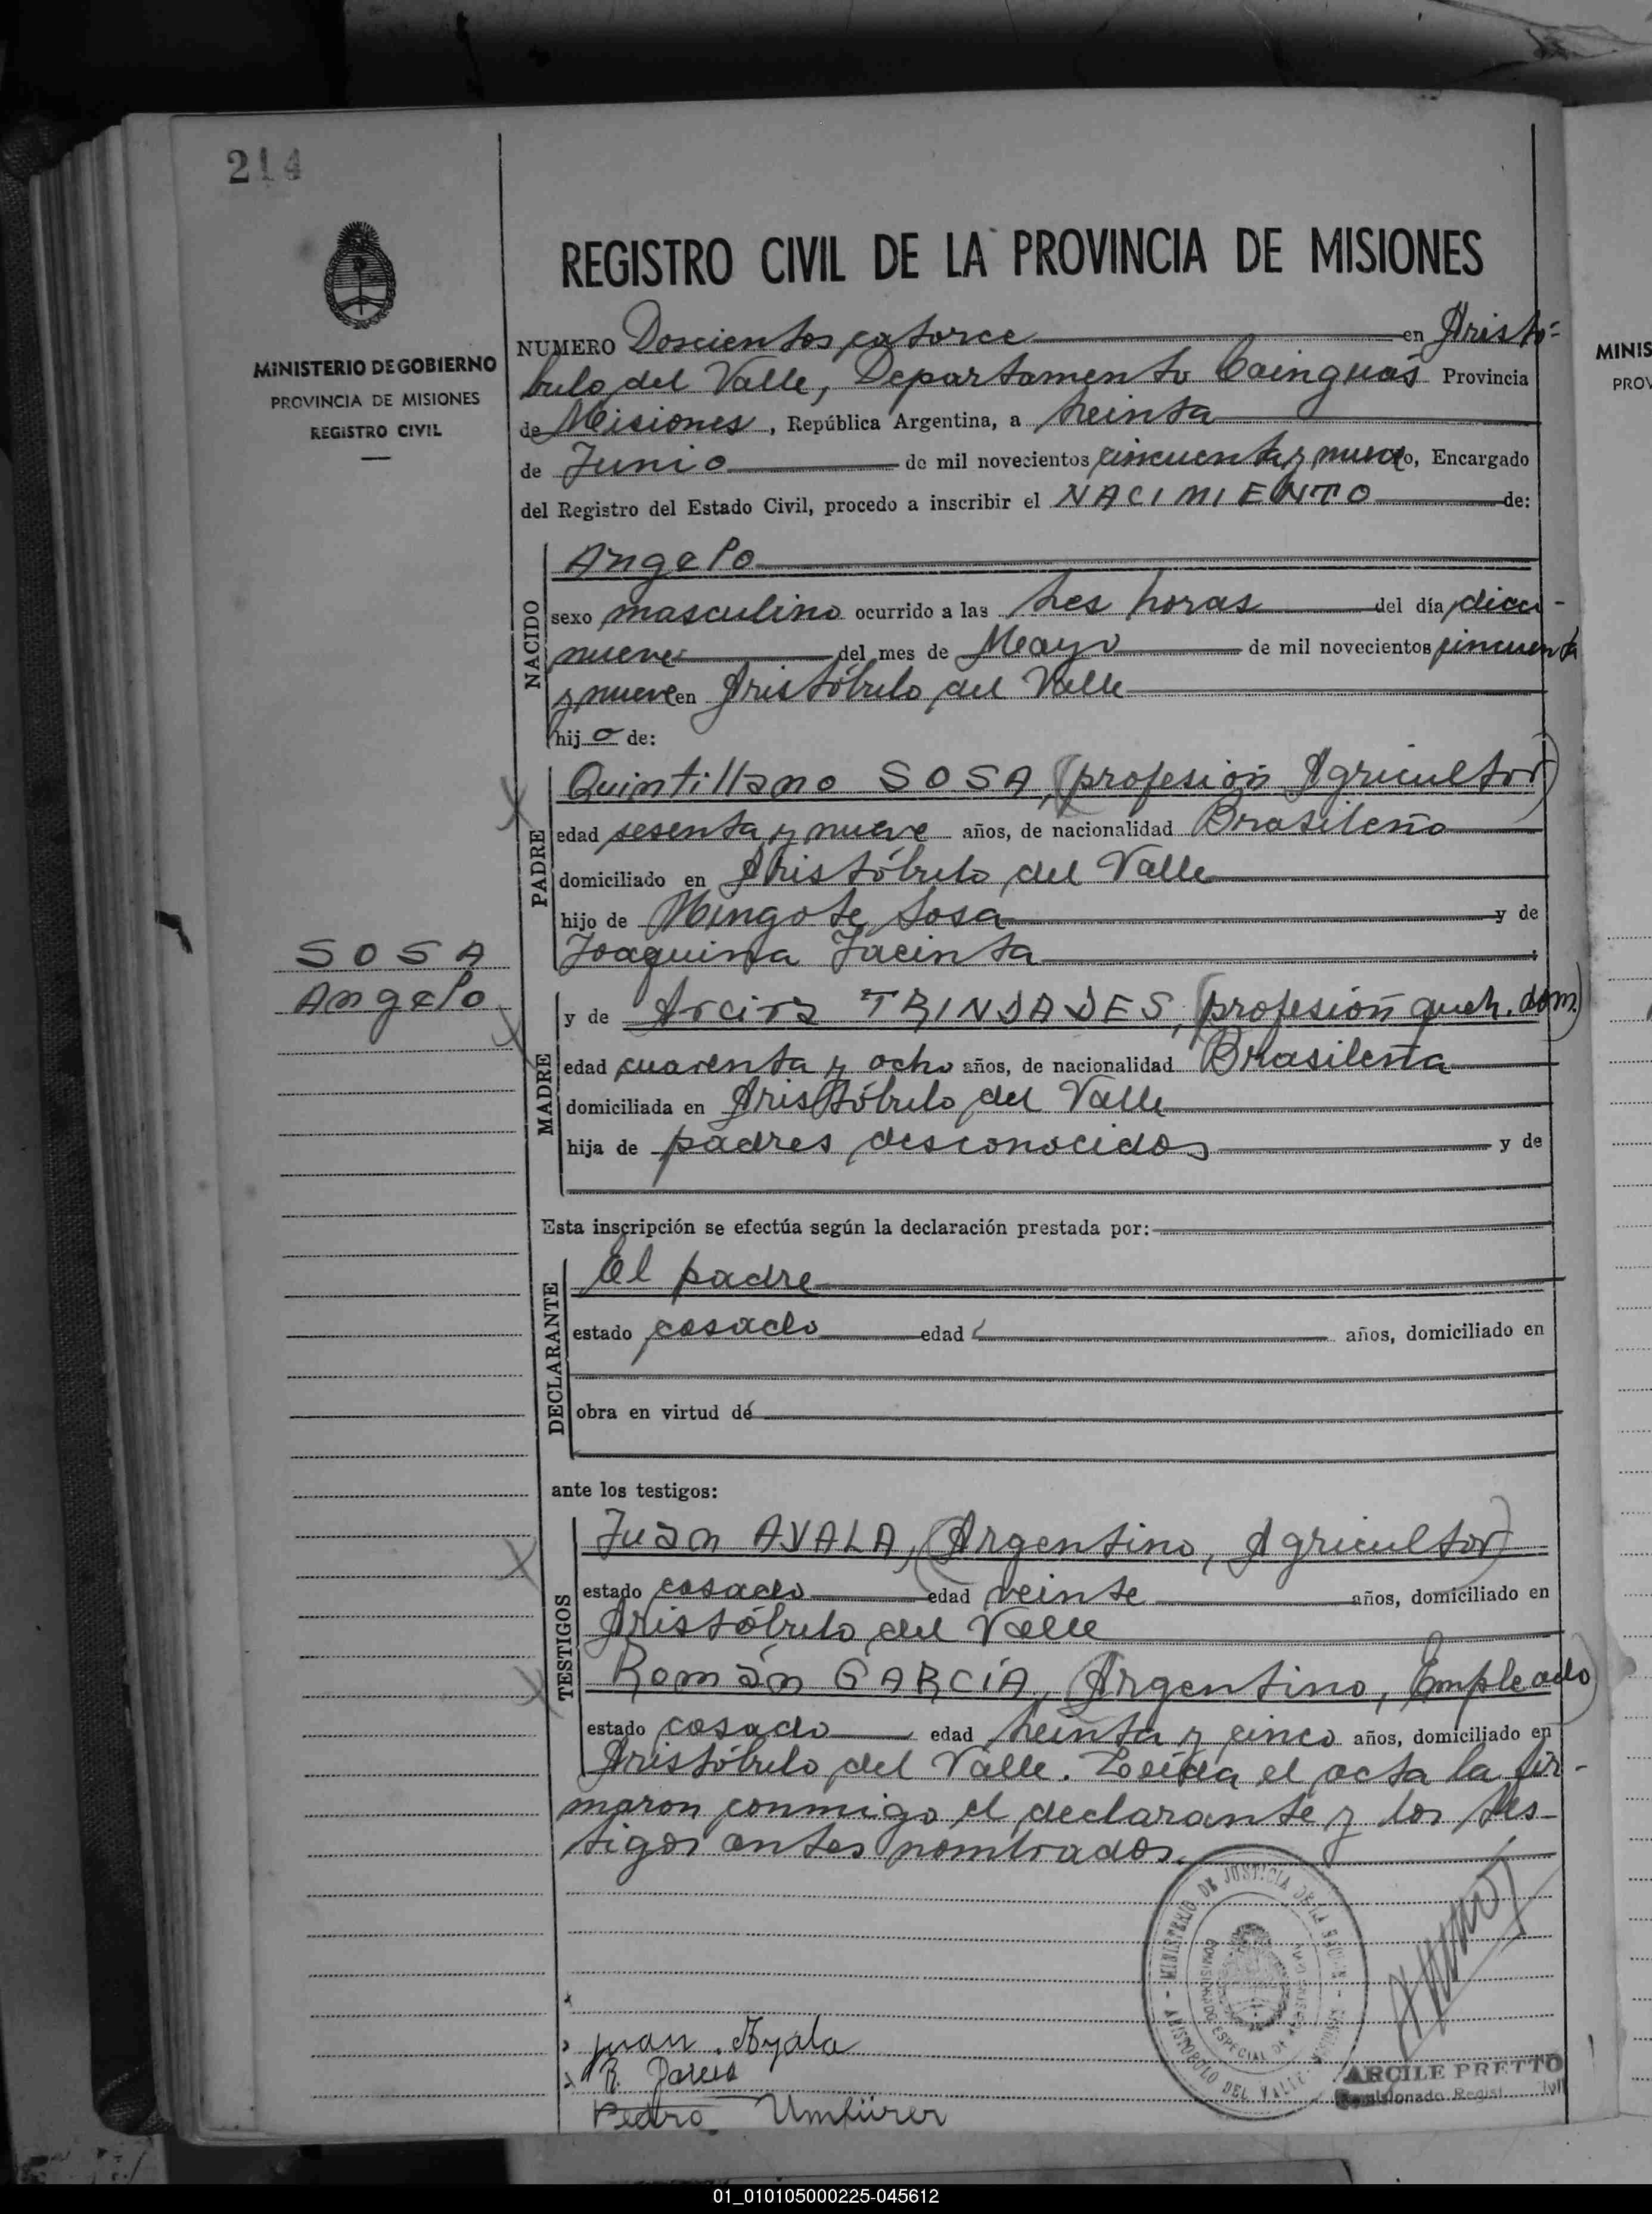 214
MINISTERIO DE GOBIERNO
PROVINCIA DE MISIONES
REGISTRO CIVIL
SOSA
Angelo
REGISTRO CIVIL DE LA PROVINCIA DE MISIONES
NUMERO Doscientos catorce en Aristó-
bulo del Valle, Departamento Cainguás Provincia
de Misiones, República Argentina, a treinta
de Junio de mil novecientos cincuenta y nueve, Encargado
del Registro del Estado Civil, procedo a inscribir el NACIMIENTO de:
NACIDO
Angelo
sexo masculino ocurrido a las tres horas del día dieci-
nueve del mes de Mayo de mil novecientos cincuenta
y nueve en Aristóbulo del Valle
hijo de:
PADRE
Quintillano SOSA, (profesión Agricultor)
edad sesenta y nueve años, de nacionalidad Brasileño
domiciliado en Aristóbulo del Valle
hijo de Mingote Sosa y de
Joaquina Jacinta
MADRE
y de Arcira TRINDADES, (profesión queh. dom.)
edad cuarenta y ocho años, de nacionalidad Brasileña
domiciliada en Aristóbulo del Valle
hija de padres desconocidos y de
Esta inscripción se efectúa según la declaración prestada por:
DECLARANTE
El padre
estado casado edad años, domiciliado en
obra en virtud de
ante los testigos:
TESTIGOS
Juan AYALA, (Argentino, Agricultor)
estado casado edad veinte años, domiciliado en
Aristóbulo del Valle
Román GARCÍA, (Argentino, Empleado)
estado casado edad treinta y cinco años, domiciliado en
Aristóbulo del Valle. Leída el acta la fir-
maron conmigo el declarante y los tes-
tigos antes nombrados.
MINISTERIO DE JUSTICIA DE LA
ARISTOBULO DEL VALLE
ESPECIAL DE
Juan Ayala
R. García
Pedro Umfürer
ARCILE PRETTO
Comisionado Regist
MINIS
PROV
01_010105000225-045612